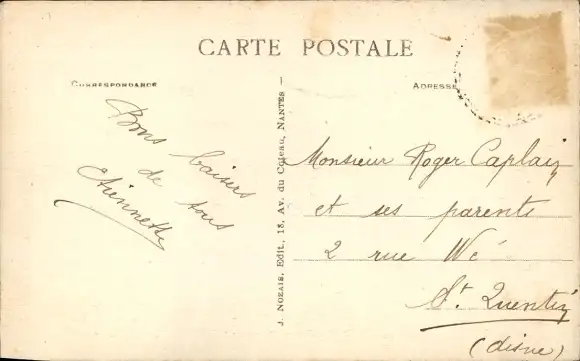 CARTE POSTALE
CORRESPONDANCE
ADRESSE
Bons baisers
de tous
J. NOZAIS, Edit., 18, Av. du Coteau, NANTES
Monsieur Roger Caplain
et ses parents
2 rue Wé
St. Quentin
(Aisne)